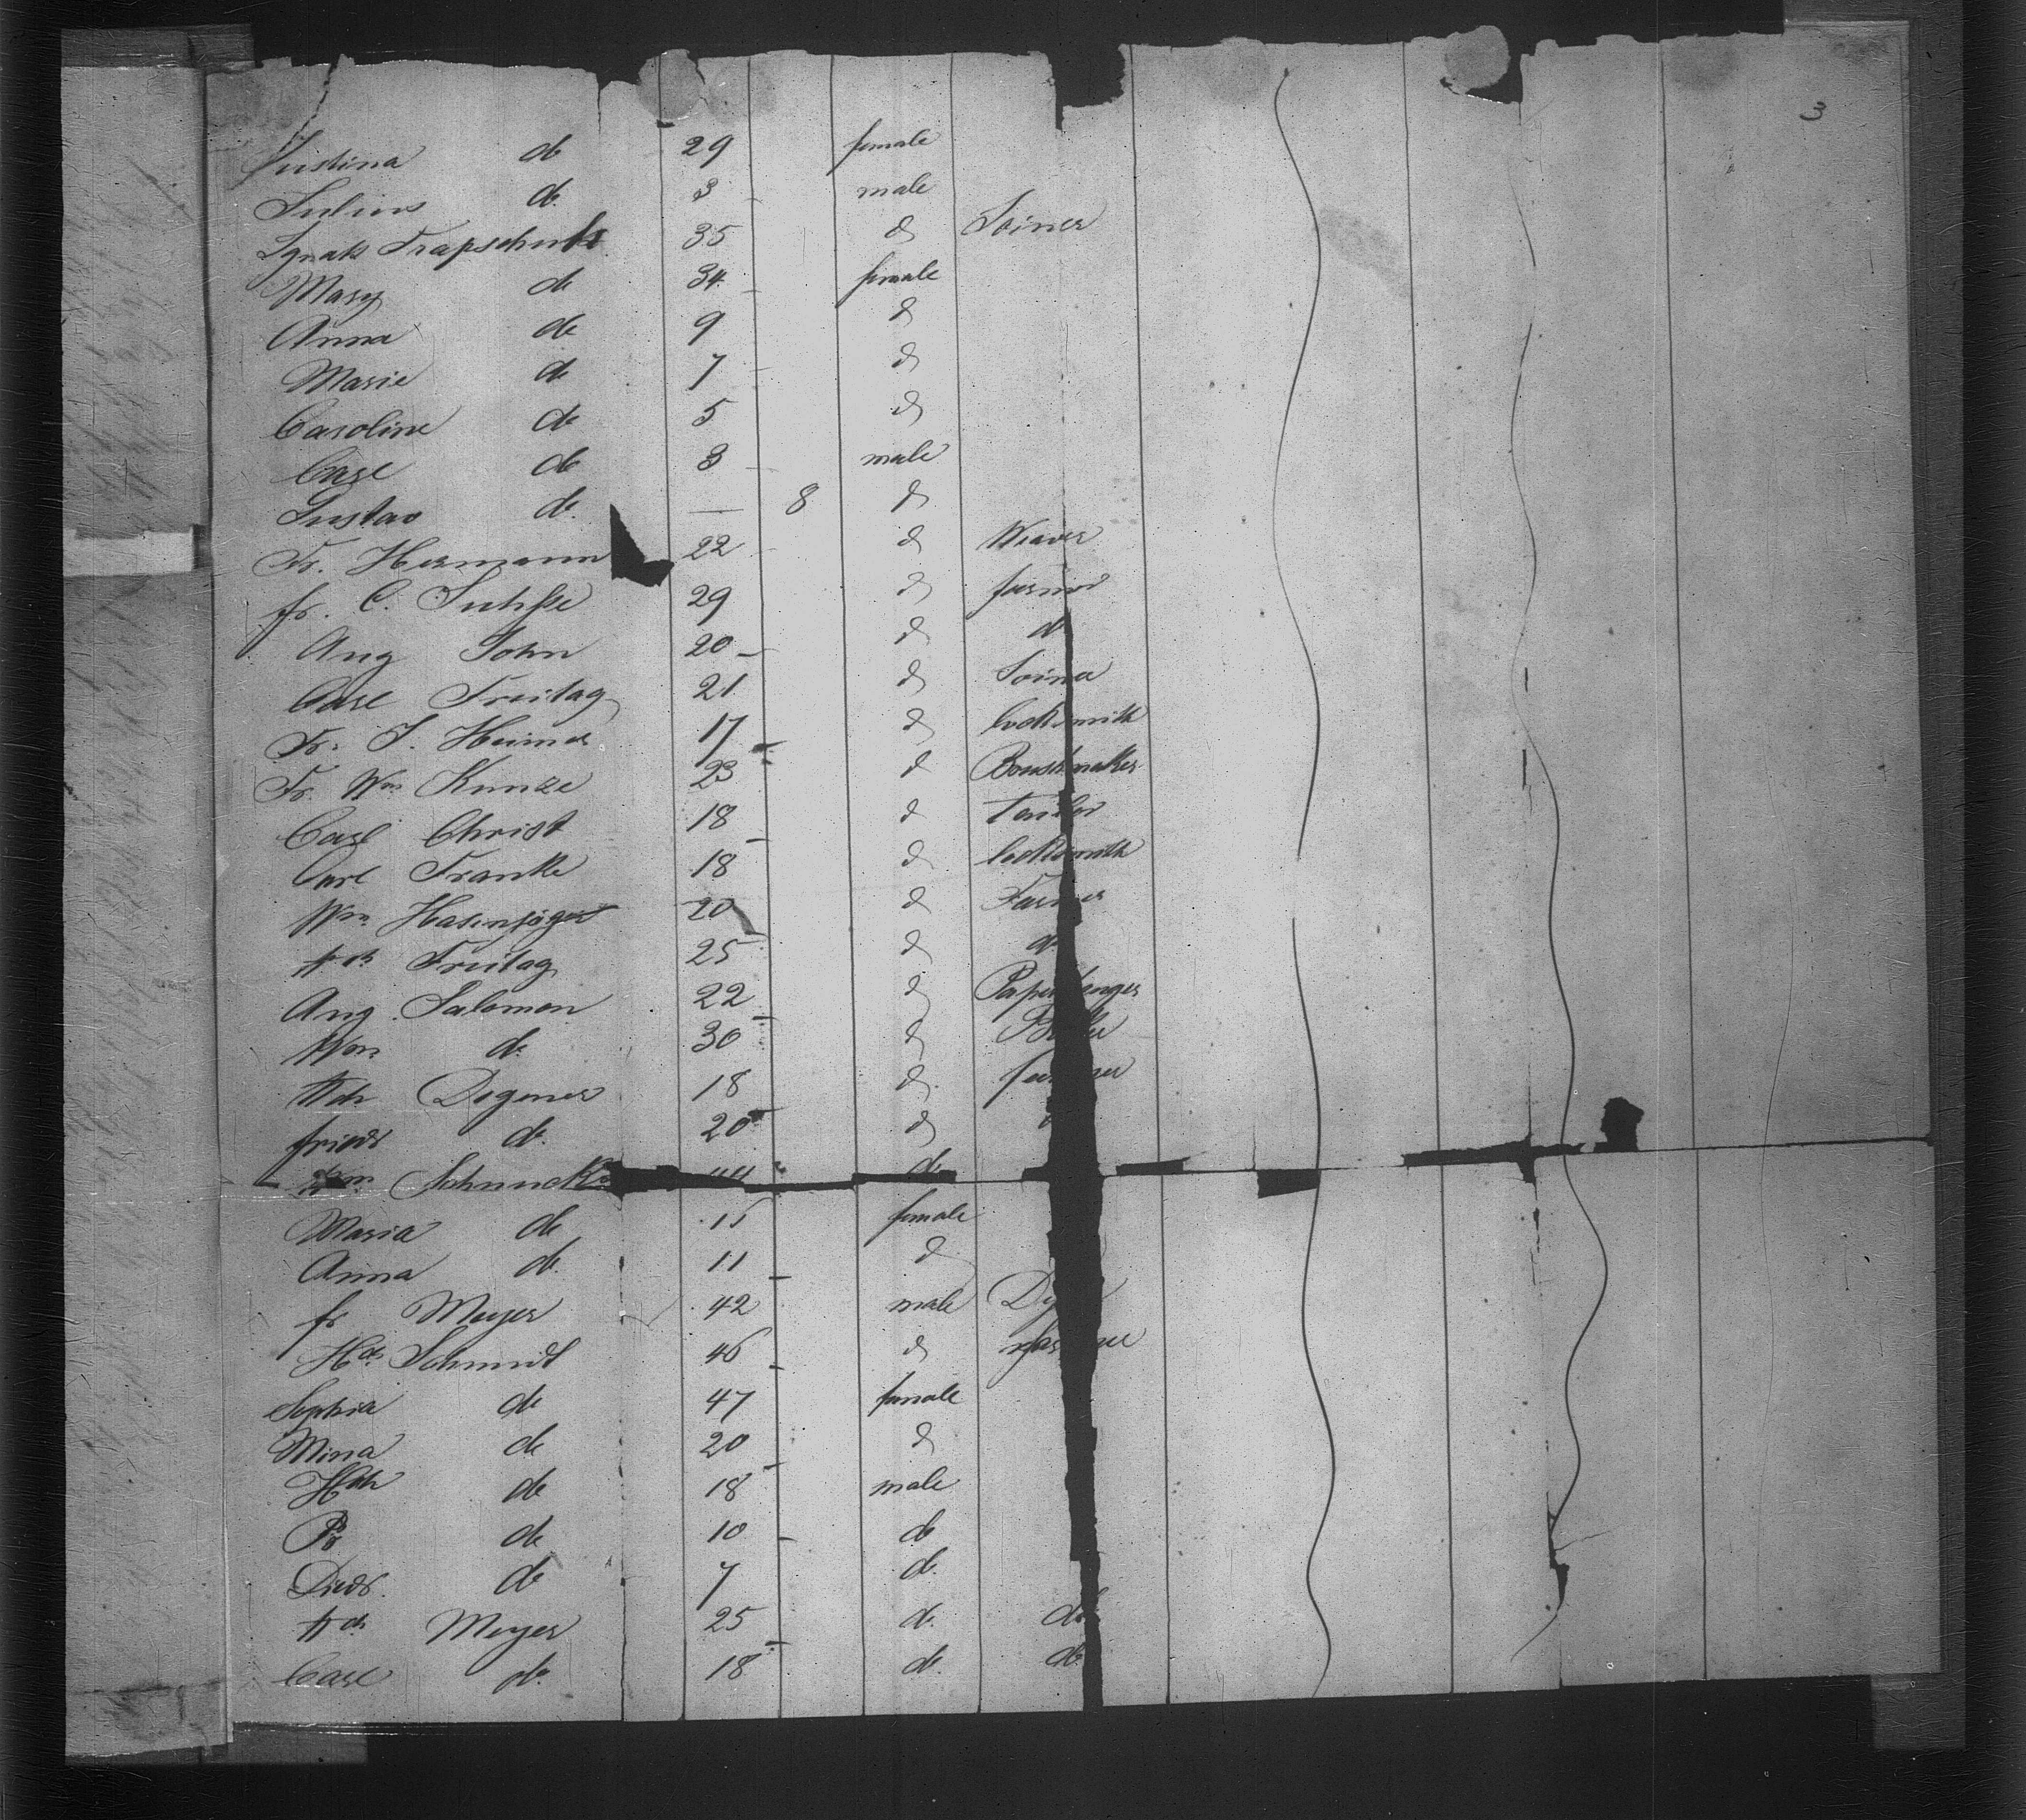 3
Justina do 29 female
Julius do 3 male
Ignatz Trapschuh 35 do Joiner
Mary do 34 female
Anna do 9 do
Marie do 7 do
Caroline do 5 do
Carl do 3 male
Gustav do — 8 do
Fr. Hermann 22 do Weaver
fr. C. 29 do farmer
Aug John 20 do do
Carl Freitag 21 do Joiner
Fr. J. Heimer 17 do locksmith
Fr. Wm Kunze 23 do Brushmaker
Carl Christ 18 do tailor
Carl Franke 18 do locksmith
Wm Hasenjäger 20 do Farmer
Hch Freitag 25 do do
Aug. Salomon 22 do Paperhenger
Wm do 30 do
Hch Degener 18 do farmer
friedr do 20 do
Schnucke 44 do
Maria do 15 female
Anna do 11 do
fr Meyer 42 male
Hch Schmidt 46 do
Sophia do 47 female
Mina do 20 do
Hch do 18 male
Fr do 10 do
Diedr. do 7 do
Hch Meyer 25 do do
Carl do 18 do do